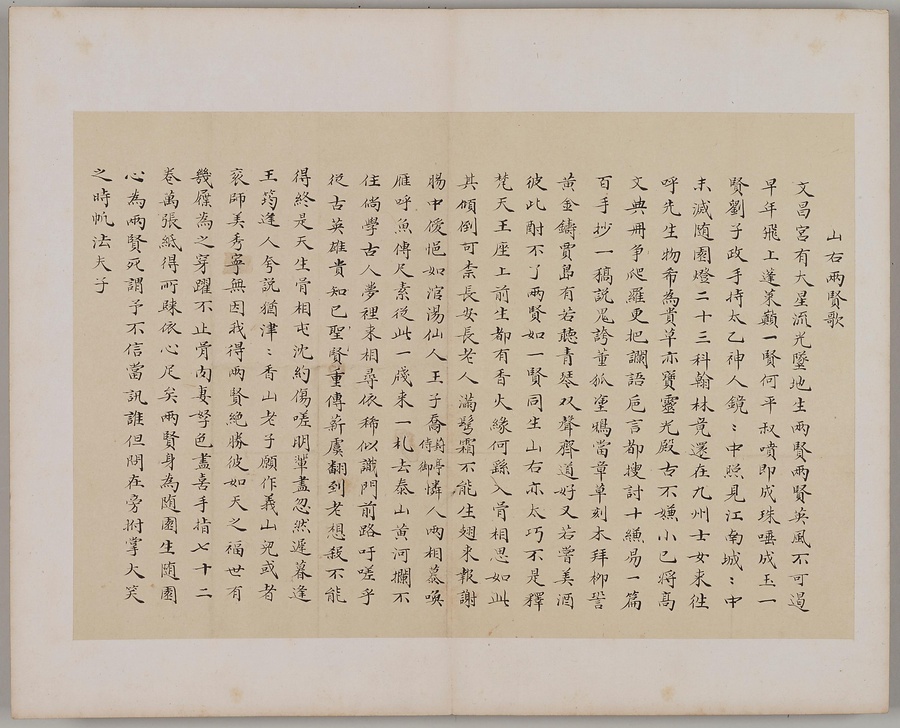 山右兩賢歌
文昌宮有大星流光墜地生兩賢兩賢英風不可遏
早年飛上蓬萊巔一賢何平叔噴即成珠唾成玉一
賢劉子政手持太乙神人鏡〻中照見江南城〻中
未滅随園燈二十三科翰林竟還在九州士女來往
呼先生物希為貴草亦寶靈光殿古不嫌小已將高
文典冊爭爬羅更把讕語卮言都搜討十縑易一篇
百手抄一稿說鬼誇董狐塗鴉當章草刻木拜柳訾
黃金鑄賈島有若聽青琴双聲齊道好又若嘗美酒
彼此酣不了兩賢如一賢同生山右亦太巧不是釋
梵天王座上前生都有香火緣何繇入骨相思如此
其傾倒可柰長安長老人滿鬢霜不能生翅來報謝
腸中優悒如涫湯仙人王子喬莉亭侍御憐人兩相慕喚
雁呼魚傳尺素從此一牋來一札去泰山黃河攔不
住倘學古人夢裡來相尋依稀似識門前路吁嗟乎
從古英雄貴知己聖賢重傳薪虞翻到老想殺不能
得終是天生骨相屯沈約傷嗟朋輩盡忽然遲暮逢
王筠逢人夸說猶津〻香山老子願作義山兒或者
衮師美秀寧無因我得兩賢絶勝彼如天之福世有
幾屧為之穿躍不止骨肉妻孥色盡喜手指七十二
卷萬張紙得所踈依心足矣兩賢身為随園生随園
心為兩賢死謂予不信當訊誰但問在旁拊掌大笑
之時帆法夫子